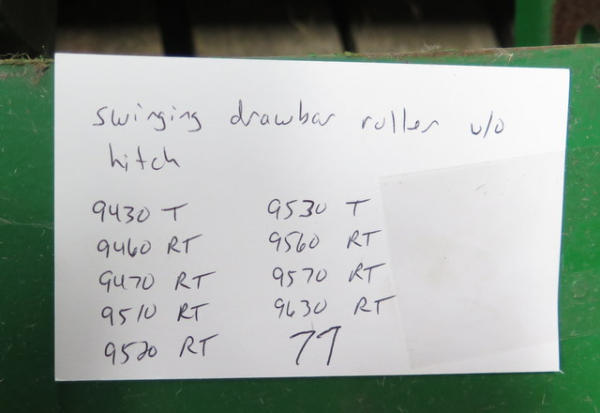 swinging drawbar roller w/o
hitch
9430 T 9530 T
9460 RT 9560 RT
9470 RT 9570 RT
9510 RT 9630 RT
9520 RT 77